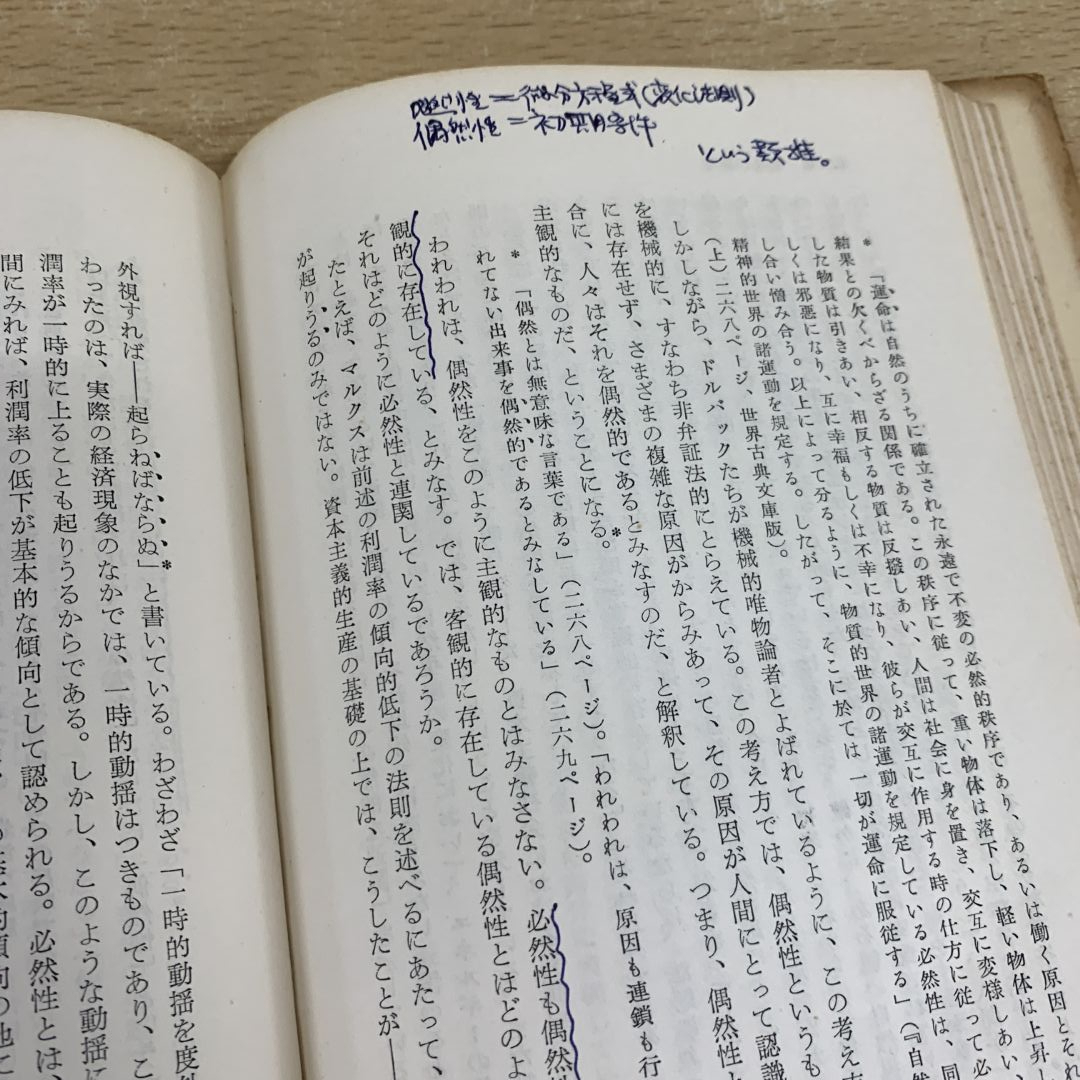 偶然性=初期条件
という類推。
*「運命は自然のうちに確立された永遠で不変の必然的秩序であり、あるいは働く原因とそれ
結果との欠くべからざる関係である。この秩序に従って、重い物体は落下し、軽い物体は上昇し
した物質は引きあい、相反する物質は反撥しあい、人間は社会に身を置き、交互に変様しあい、
しくは邪悪になり、互に幸福もしくは不幸になり、彼らが交互に作用する時の仕方に従って必
し合い憎み合う。以上によって分るように、物質的世界の諸運動を規定している必然性は、同
精神的世界の諸運動を規定する。したがって、そこに於ては一切が運命に服従する」(『自然
(上)二六八ページ、世界古典文庫版)。
しかしながら、ドルバックたちが機械的唯物論者とよばれているように、この考え方
を機械的に、すなわち非弁証法的にとらえている。この考え方では、偶然性というも
には存在せず、さまざまの複雑な原因がからみあって、その原因が人間にとって認識
合に、人々はそれを偶然的であるとみなすのだ、と解釈している。つまり、偶然性
主観的なものだ、ということになる。*
*「偶然とは無意味な言葉である」(二六八ページ)。「われわれは、原因も連鎖も
れてない出来事を偶然的であるとみなしている」(二六九ページ)。
われわれは、偶然性をこのように主観的なものとはみなさない。必然性も偶然
観的に存在している、とみなす。では、客観的に存在している偶然性とはどのよ
それはどのように必然性と連関しているであろうか。
たとえば、マルクスは前述の利潤率の傾向的低下の法則を述べるにあたって、
が起りうるのみではない。資本主義的生産の基礎の上では、こうしたことが――
外視すれば――起らねばならぬ」*と書いている。わざわざ「一時的動揺を度外
わったのは、実際の経済現象のなかでは、一時的動揺はつきものであり、こ
潤率が一時的に上ることも起りうるからである。しかし、このような動揺に
間にみれば、利潤率の低下が基本的な傾向として認められる。必然性とは、